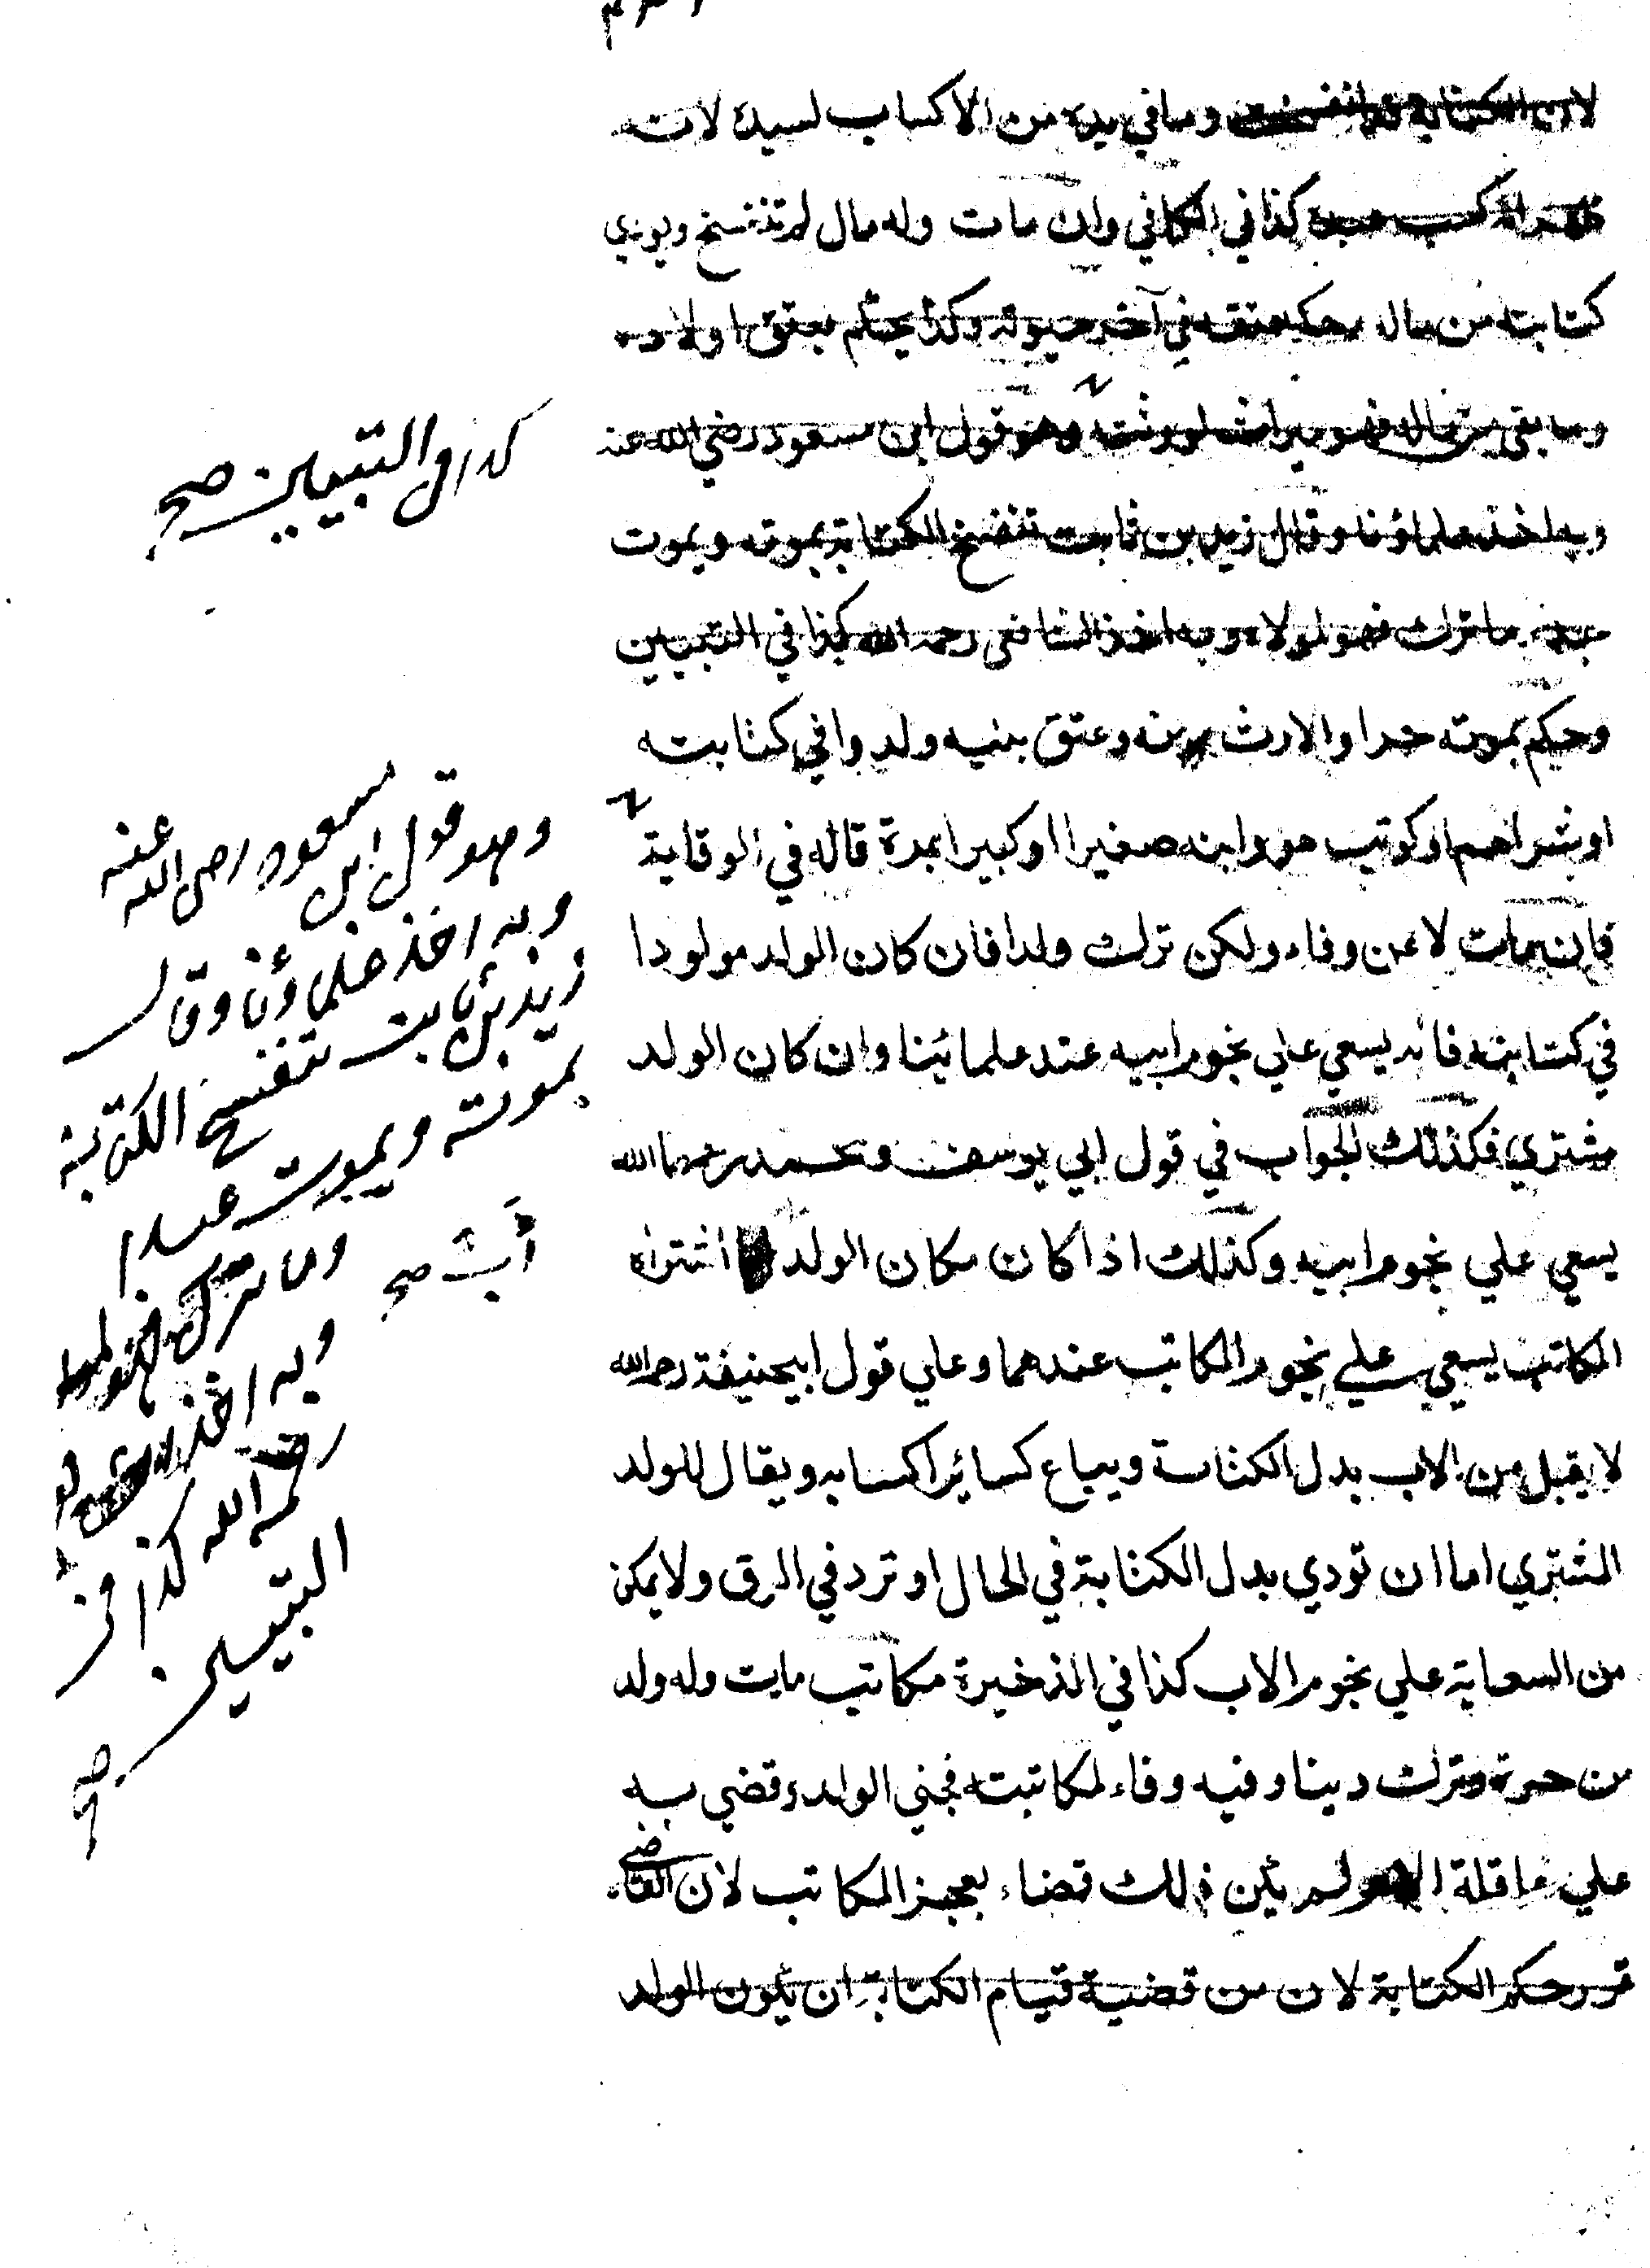 لان الكتابة قد انفسخت وما في يده من الاكساب لسيده لانه
ظهر انه كسب عبده كذا في الكافي وان مات وله مال لم تنفسخ ويودي
كتابته من ماله وحكم بعتقه في آخر حيوته وكذا يحكم بعتق اولاده
وما بقي من ماله فهو ميراث لورثته وهو قول ابن مسعود رضي الله عنه
وبه اخذ علماؤنا وقال زيد بن ثابت تنفسخ الكتابة بموته ويموت
عبدا وما ترك فهو لمولاه وبه اخذ الشافعي رحمه الله كذا في التبيين
وحكم بموته حرا والارث منه وعتق بنيه ولدوا في كتابته
او شراهم او كوتب هو وابنه صغيرا او كبيرا بمرة قاله في الوقاية
فان مات لا عن وفاء ولكن ترك ولدا فان كان الولد مولودا
في كتابته فانه يسعي علي نجوم ابيه عند علمائنا وان كان الولد
مشتري فكذلك الجواب في قول ابي يوسف ومحمد رحمهما الله
يسعي علي نجوم ابيه وكذلك اذا كان مكان الولد اشتراه
المكاتب يسعي علي نجوم المكاتب عندهما وعلي قول ابيحنيفة رحمه الله
لا يقبل من الاب بدل الكتابة ويباع كسائر اكسابه ويقال للولد
المشتري اما ان تودي بدل الكتابة في الحال او ترد في الرق ولا يمكن
من السعاية علي نجوم الاب كذا في الذخيرة مكاتب مات وله ولد
من حرة وترك دينا وفيه وفاء لمكاتبته فجني الولد وقضي به
علي عاقلة الام لم يكن ذلك قضاء بعجز المكاتب لان القاضي
قرر حكم الكتابة لان من قضية قيام الكتابة ان يكون الولد
كذا في التبيين صح
وهو قول ابن مسعود رضي الله عنه
وبه اخذ علماؤنا وقال
زيد بن ثابت تنفسخ الكتابة
بموته ويموت عبدا
وما ترك فهو لمولاه
وبه اخذ
رحمه الله كذا في
التبيين
صح
أب صح